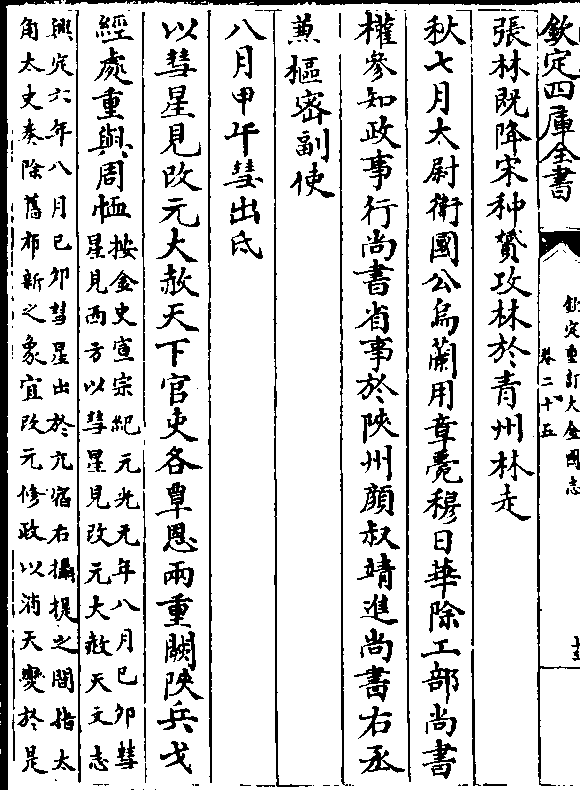 欽定四庫全書
欽定重訂大金國志
卷二十五
張林既降宋种贇攻林於青州林走
秋七月太尉衛國公烏蘭用章薨穆日華除工部尚書
權參知政事行尚書省事於陜州顔叔靖進尚書右丞
兼樞密副使
八月甲午彗出氐
以彗星見改元大赦天下官吏各覃恩兩重闕陜兵戈
經處重與周恤
按金史宣宗紀元光元年八月己卯彗
星見西方以彗星見改元大赦天文志
興定六年八月己卯彗星出於亢宿右攝提之間指大
角太史奏除舊布新之象宜改元修政以消天變於是